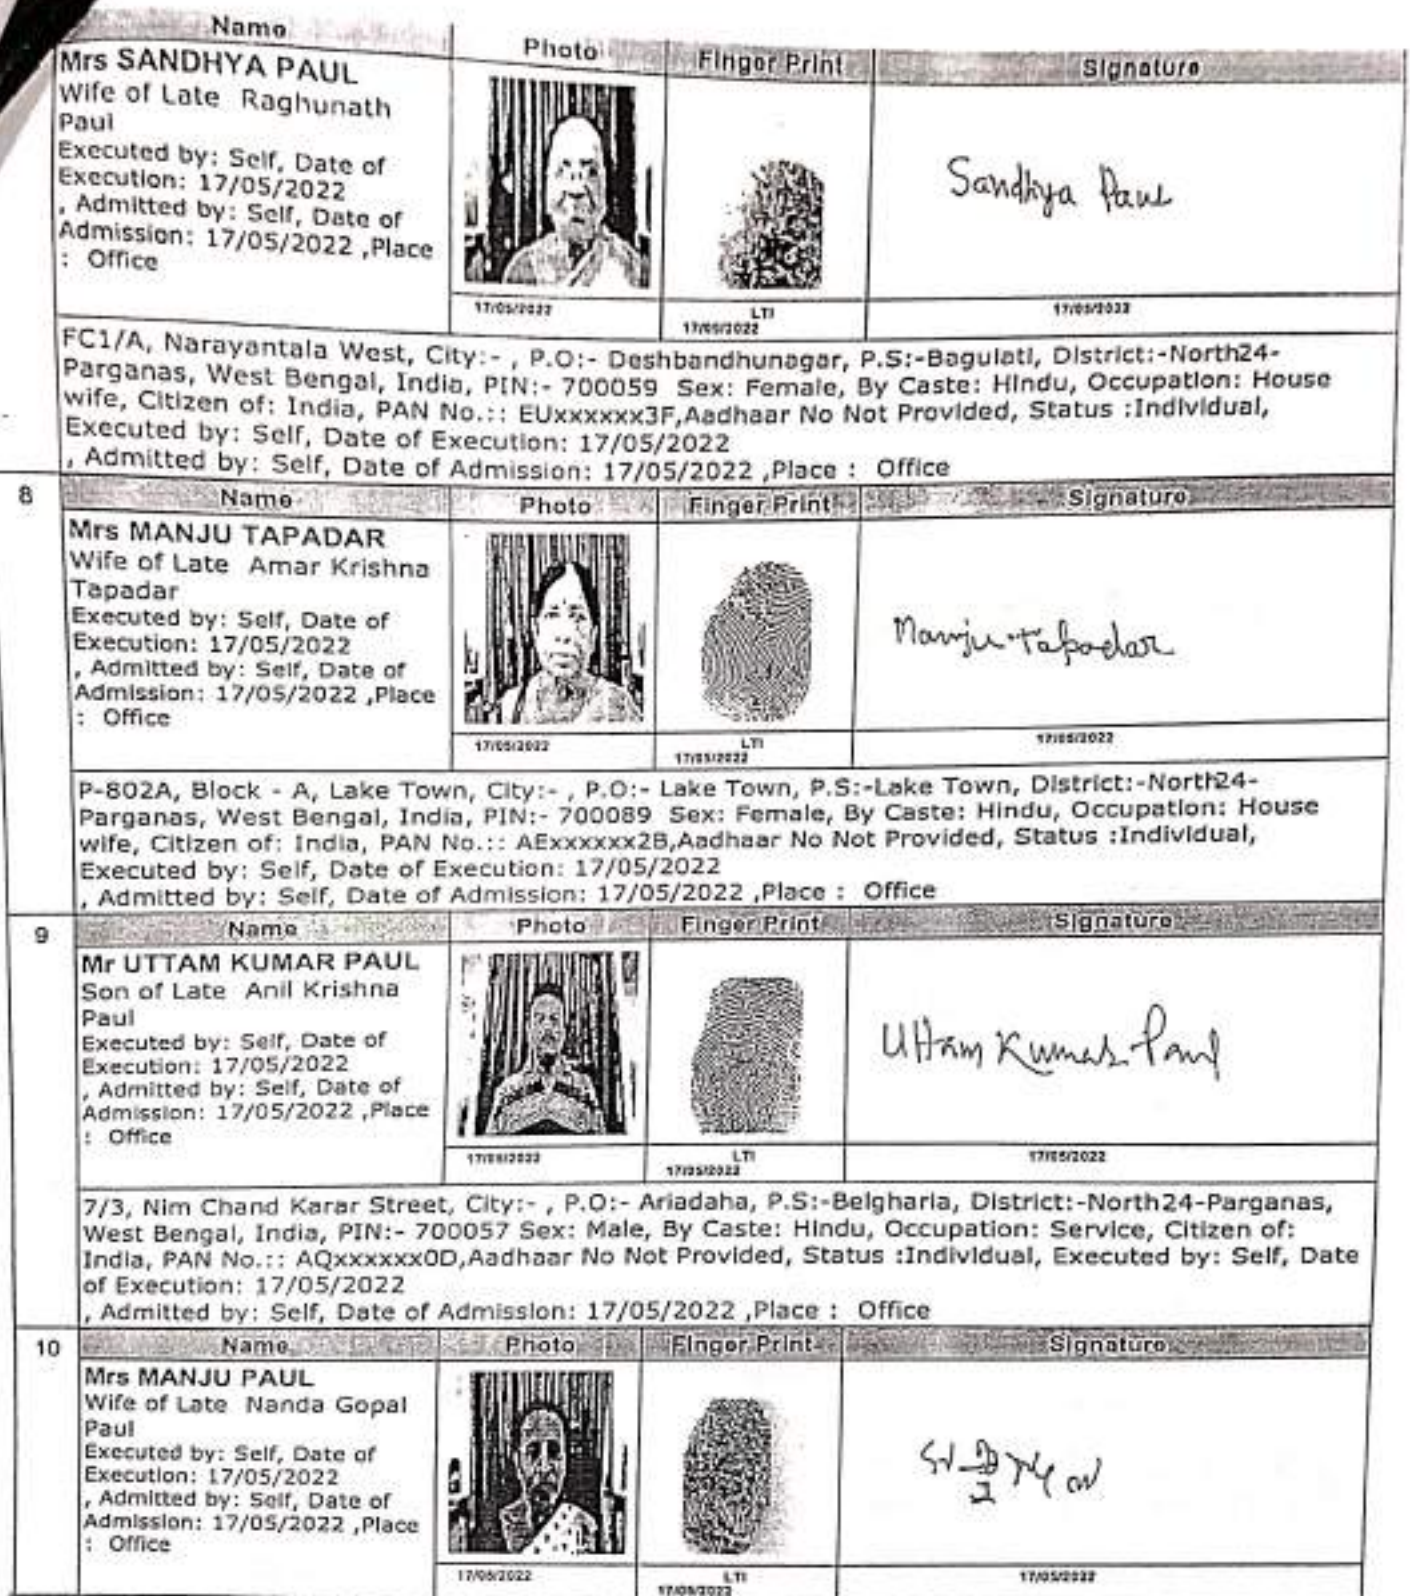 Name Photo Finger Print Signature
Mrs SANDHYA PAUL
Wife of Late Raghunath
Paul
Executed by: Self, Date of
Execution: 17/05/2022
, Admitted by: Self, Date of
Admission: 17/05/2022 ,Place
: Office
Sandhya Paul
17/05/2022 LTI 17/05/2022
17/05/2022
FC1/A, Narayantala West, City:- , P.O:- Deshbandhunagar, P.S:-Baguiati, District:-North24-
Parganas, West Bengal, India, PIN:- 700059 Sex: Female, By Caste: Hindu, Occupation: House
wife, Citizen of: India, PAN No.:: EUxxxxxx3F,Aadhaar No Not Provided, Status :Individual,
Executed by: Self, Date of Execution: 17/05/2022
, Admitted by: Self, Date of Admission: 17/05/2022 ,Place : Office
8 Name Photo Finger Print Signature
Mrs MANJU TAPADAR
Wife of Late Amar Krishna
Tapadar
Executed by: Self, Date of
Execution: 17/05/2022
, Admitted by: Self, Date of
Admission: 17/05/2022 ,Place
: Office
Manju Tapadar
17/05/2022 LTI 17/05/2022
17/05/2022
P-802A, Block - A, Lake Town, City:- , P.O:- Lake Town, P.S:-Lake Town, District:-North24-
Parganas, West Bengal, India, PIN:- 700089 Sex: Female, By Caste: Hindu, Occupation: House
wife, Citizen of: India, PAN No.:: AExxxxxx2B,Aadhaar No Not Provided, Status :Individual,
Executed by: Self, Date of Execution: 17/05/2022
, Admitted by: Self, Date of Admission: 17/05/2022 ,Place : Office
9 Name Photo Finger Print Signature
Mr UTTAM KUMAR PAUL
Son of Late Anil Krishna
Paul
Executed by: Self, Date of
Execution: 17/05/2022
, Admitted by: Self, Date of
Admission: 17/05/2022 ,Place
: Office
Uttam Kumar Paul
17/05/2022 LTI 17/05/2022
17/05/2022
7/3, Nim Chand Karar Street, City:- , P.O:- Ariadaha, P.S:-Belgharia, District:-North24-Parganas,
West Bengal, India, PIN:- 700057 Sex: Male, By Caste: Hindu, Occupation: Service, Citizen of:
India, PAN No.:: AQxxxxxx0D,Aadhaar No Not Provided, Status :Individual, Executed by: Self, Date
of Execution: 17/05/2022
, Admitted by: Self, Date of Admission: 17/05/2022 ,Place : Office
10 Name Photo Finger Print Signature
Mrs MANJU PAUL
Wife of Late Nanda Gopal
Paul
Executed by: Self, Date of
Execution: 17/05/2022
, Admitted by: Self, Date of
Admission: 17/05/2022 ,Place
: Office
17/05/2022 LTI 17/05/2022
17/05/2022